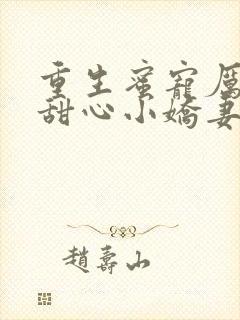 重生蜜寵厲
甜心小嬌妻
趙壽山